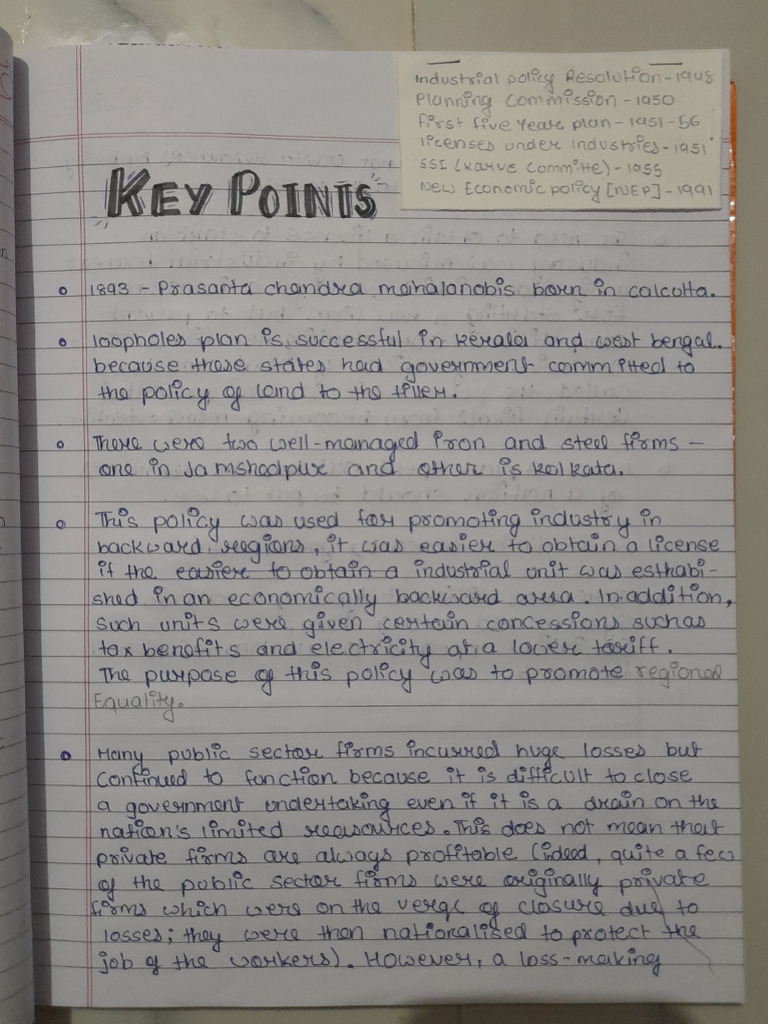 Industrial policy Resolution - 1948
Planning Commission - 1950
first five Year plan - 1951-56
licenses under Industries - 1951
SSI (Karve Committe) - 1955
New Economic policy [NEP] - 1991
KEY POINTS
1893 - Prasanta chandra mahalanobis born in calcutta.
loopholes plan is successful in kerala and west bengal.
because these states had government committed to
the policy of land to the tiller.
There were two well-managed iron and steel firms -
one in Jamshedpur and other is kolkata.
This policy was used for promoting industry in
backward regions, it was easier to obtain a license
if the easier to obtain a industrial unit was esthabi-
shed in an economically backward area. In addition,
such units were given certain concessions such as
tax benefits and electricity at a lower tariff.
The purpose of this policy was to promote regional
Equality.
Many public sector firms incurred huge losses but
continued to function because it is difficult to close
a government undertaking even if it is a drain on the
nation's limited reasources. This does not mean that
private firms are always profitable (indeed, quite a few
of the public sector firms were originally private
firms which were on the verge of closure due to
losses; they were then nationalised to protect the
job of the workers). However, a loss-making